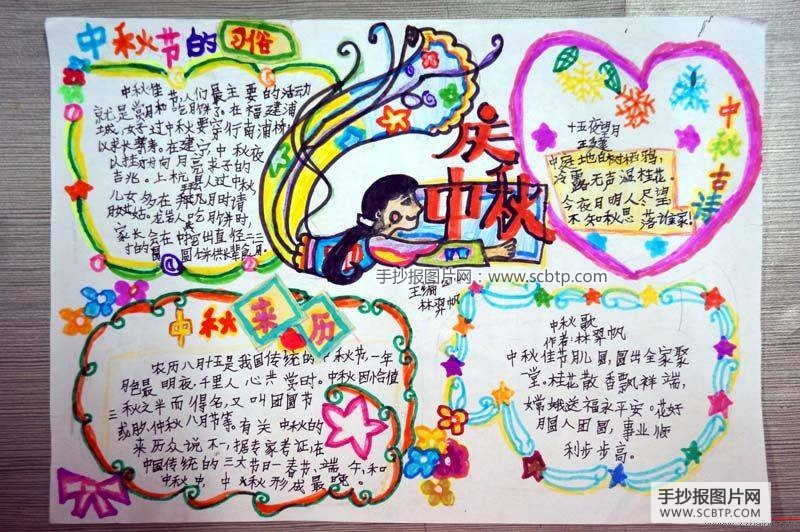 中秋节的
习俗
中秋佳节人们最主要的活动
就是赏月和吃月饼了。在福建浦
城,女子过中秋要穿行南浦桥,
以求长寿。在建宁中秋夜
以挂灯为向月宫求子的
吉兆。上杭县人过中秋
儿女多在拜月时请
月姑。龙岩人吃月饼时,
家长会在中央挖出直径二三
寸的圆饼供长辈食用。
庆
中秋
王编
林羿帆
手抄报图片网:www.scbtp.com
中秋古诗
十五夜望月
王建
中庭地白树栖鸦,
冷露无声湿桂花。
今夜月明人尽望
不知秋思落谁家!
中秋来历
农历八月十五是我国传统的中秋节一年
月色最明夜,千里人心共赏时。中秋因恰值
三秋之半而得名,又叫团圆节
或月夕,仲秋八月节等。有关中秋的
来历众说不一,据专家考证,在
中国传统的三大节日—春节、端午、和
中秋中,中秋形成最晚。
中秋歌
作者:林羿帆
中秋佳节月儿圆,圆出全家聚
一堂。桂花散香飘祥端,
嫦娥送福永平安。花好
月圆人团圆,事业顺
利步步高。
手抄报图片网
WWW.SCBTP.COM